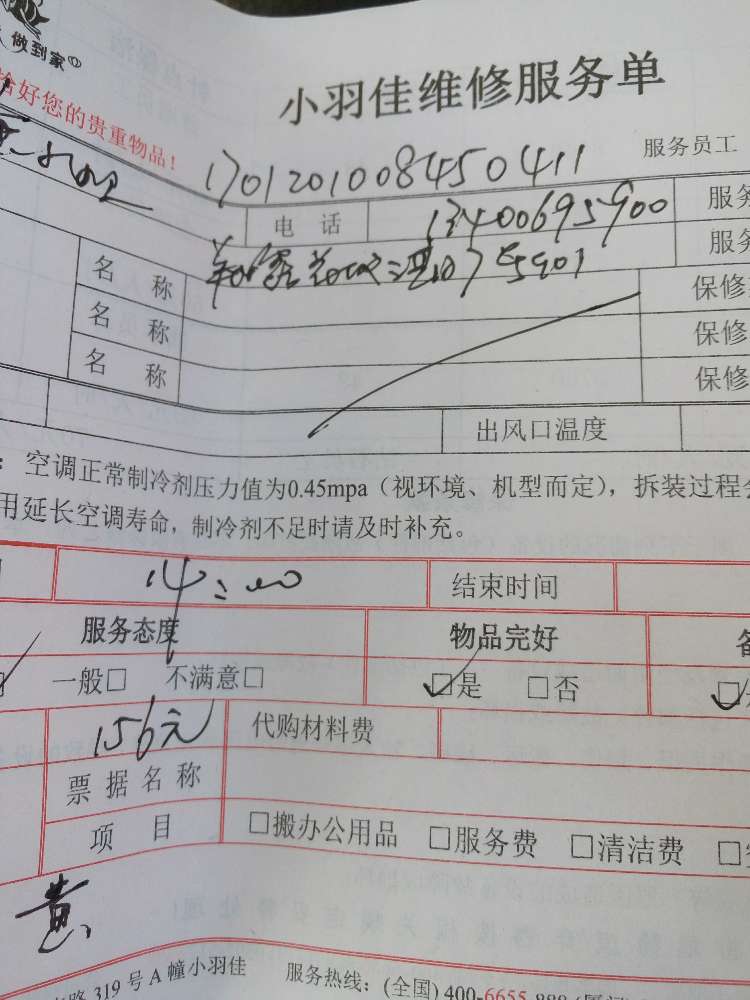 做到家
小羽佳维修服务单
恰好您的贵重物品！
1701201008450411
服务员工
电 话 13400695900 服务
名 称 服务
名 称 保修
名 称 保修
保修
出风口温度
：空调正常制冷剂压力值为0.45mpa（视环境、机型而定），拆装过程会
用延长空调寿命，制冷剂不足时请及时补充。
14:00 结束时间
服务态度 物品完好 备
一般□ 不满意□ ☑是 □否
156元 代购材料费
票据名称
项 目 □搬办公用品 □服务费 □清洁费 □
黄
路 319 号 A 幢小羽佳 服务热线：(全国) 400-6655-888 (厦